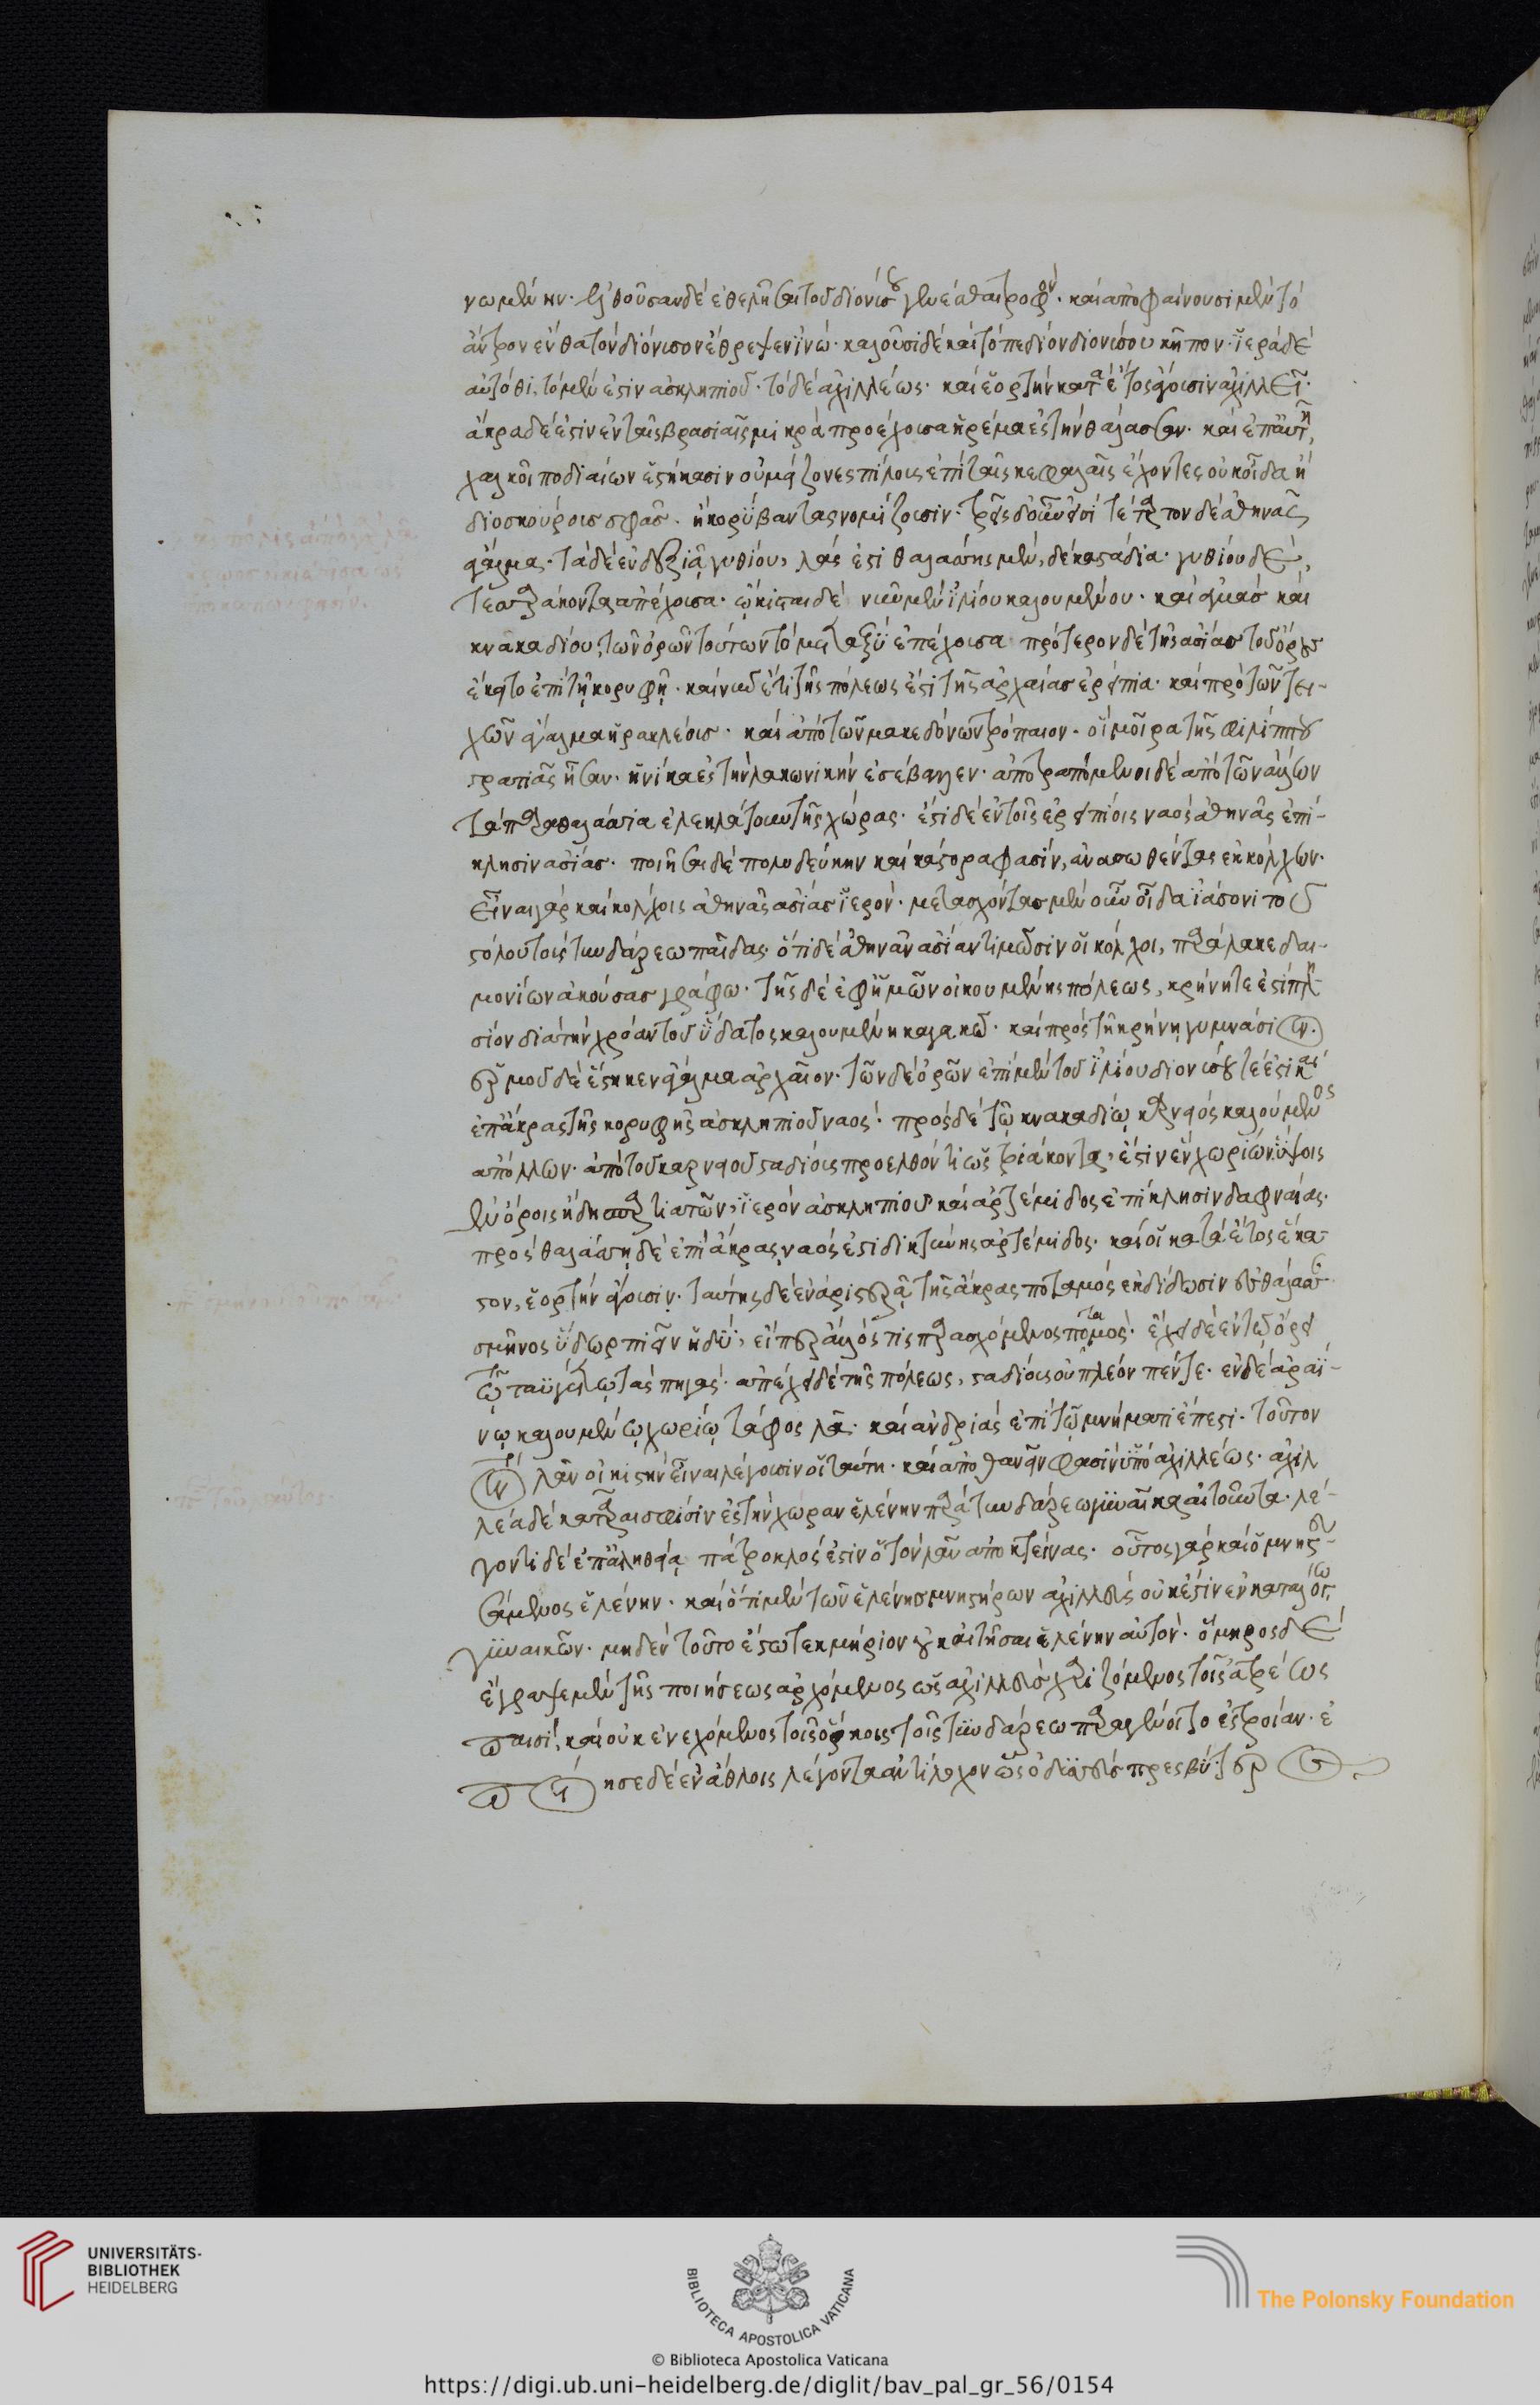 νωμένην. ἐλθοῦσαν δὲ ἐθελῆσαι τοῦ διονύσου γενέσθαι τροφόν. καὶ ἀποφαίνουσι μὲν τὸ
ἄντρον ἔνθα τὸν διόνυσον ἔθρεψεν ἰνώ. καλοῦσι δὲ καὶ τὸ πεδίον διονύσου κῆπον. ἱερὰ δὲ
αὐτόθι, τὸ μέν ἐστιν ἀσκληπιοῦ. τὸ δὲ ἀχιλλέως. καὶ ἑορτὴν κατὰ ἔτος ἄγουσιν ἀχιλλεῖ.
ἄκρα δέ ἐστιν ἐν ταῖς βρασιαῖς μικρὰ προέχουσα ἠρέμα ἐς τὴν θάλασσαν. καὶ ἐπ' αὐτῇ,
χαλκοῖ ποδιαίων ἑστήκασιν οὐ μείζονες πίλους ἐπὶ ταῖς κεφαλαῖς ἔχοντες οὐκ οἶδα ἢ
διοσκούρους σφᾶς. ἢ κορύβαντας νομίζουσιν. τρεῖς δ' οὖν εἰσί τέταρτον δὲ ἀθηνᾶς
ἄγαλμα. τὰ δὲ ἐν δεξιᾷ γυθίου, λάς ἐστι θαλάσσης μὲν, δέκα στάδια. γυθίου δὲ,
τεσσαράκοντα ἀπέχουσα. ᾤκισται δὲ νῦν μὲν ἰλίου καλουμένου. καὶ ἀσίας καὶ
κνακαδίου, τῶν ὀρῶν τούτων τὸ μεταξὺ ἐπέχουσα πρότερον δὲ τῆς ἀσίας τοῦ ὄρους
ἔκειτο ἐπὶ τῇ κορυφῇ. καὶ νῦν ἔτι τῆς πόλεώς ἐστι τῆς ἀρχαίας ἐρείπια. καὶ πρὸ τῶν τει-
χῶν ἄγαλμα ἡρακλέους. καὶ ἀπὸ τῶν μακεδόνων τρόπαιον. οἳ μοῖρα τῆς φιλίππου
στρατιᾶς ἦσαν. ἡνίκα ἐς τὴν λακωνικὴν ἐσέβαλεν. ἀποτραπόμενοι δὲ ἀπὸ τῶν ἄλλων
τὰ παραθαλάσσια ἐλεηλάτουν τῆς χώρας. ἔστι δὲ ἐν τοῖς ἐρειπίοις ναὸς ἀθηνᾶς ἐπί-
κλησιν ἀσίας. ποιῆσαι δὲ πολυδεύκην καὶ κάστορα φασίν, ἀνασωθέντας ἐκ κόλχων.
εἶναι γὰρ καὶ κόλχοις ἀθηνᾶς ἀσίας ἱερόν. μετασχόντας μὲν οὖν οἶδα ἰάσονι τοῦ
στόλου τοὺς τυνδάρεω παῖδας. ὅτι δὲ ἀθηνᾶν ἀσίαν τιμῶσιν οἱ κόλχοι, παρὰ λακεδαι-
μονίων ἀκούσας γράφω. τῆς δὲ ἐφ' ἡμῶν οἰκουμένης πόλεως, κρήνη τέ ἐστι πλη
σίον διὰ τὴν χρόαν τοῦ ὕδατος καλουμένη καλακῶ. καὶ πρὸς τῇ κρήνῃ γυμνάσιον.
ἑρμοῦ δὲ ἕστηκεν ἄγαλμα ἀρχαῖον. τῶν δὲ ὀρῶν ἐπὶ μὲν τοῦ ἰλίου διονύσου τέ ἐστι καὶ
ἐπ' ἄκρας τῆς κορυφῆς ἀσκληπιοῦ ναός. πρὸς δὲ τῷ κνακαδίῳ καρνειὸς καλούμενος
ἀπόλλων. ἀπὸ τοῦ καρνειοῦ σταδίους προελθόντι ὡς τριάκοντα, ἔστιν ἐν χωρίῳ ὑψοις
ἐν ὅροις ἤδη σπαρτιατῶν, ἱερὸν ἀσκληπιοῦ καὶ ἀρτέμιδος ἐπίκλησιν δαφναίας.
πρὸς θαλάσσῃ δὲ ἐπὶ ἄκρας, ναός ἐστι δικτύνης ἀρτέμιδος. καὶ οἱ κατὰ ἔτος ἕκα
στον, ἑορτὴν ἄγουσιν. ταύτης δὲ ἐν ἀριστερᾷ τῆς ἄκρας ποταμὸς ἐκδίδωσιν ἐς θάλασσαν
σμῆνος ὕδωρ πιεῖν ἡδύ, εἴπερ ἄλλος τις παρασχόμενος ποταμός. ἔχει δὲ ἐν τῷ ὄρει
τῷ ταϋγέτῳ τὰς πηγάς. ἀπέχει δὲ τῆς πόλεως, σταδίους οὐ πλέον πέντε. ἐν δὲ ἀραΐ-
νῳ καλουμένῳ χωρίῳ τάφος λᾶ. καὶ ἀνδριὰς ἐπὶ τῷ μνήματι ἔπεστι. τοῦτον
τὸν λᾶν οἰκιστὴν εἶναι λέγουσιν οἱ ταύτῃ. καὶ ἀποθανεῖν φασίν ὑπὸ ἀχιλλέως. ἀχιλ
λέα δὲ κατᾶραι σφίσιν ἐς τὴν χώραν ἑλένην παρὰ τυνδάρεω γυναῖκα αἰτοῦντα. λέ-
γοντι δὲ ἐπ' ἀληθείᾳ πάτροκλός ἐστιν ὁ τὸν λᾶν ἀποκτείνας. οὗτος γὰρ καὶ ὁ μνηστευ-
σάμενος ἑλένην. καὶ ὅτι μὲν τῶν ἑλένης μνηστήρων ἀχιλλεὺς οὐκ ἔστιν ἐν καταλόγῳ
γυναικῶν. μηδὲν τοῦτο ἔστω τεκμήριον οὐκ αἰτῆσαι ἑλένην αὐτόν. ὅμηρος δὲ
ἔγραψε μὲν τῆς ποιήσεως ἀρχόμενος ὡς ἀχιλλεὺς χαριζόμενος τοῖς ἀτρέως
παισί, καὶ οὐκ ἐνεχόμενος τοῖς ὅρκοις τοῖς τυνδάρεω παραγένοιτο ἐς τροίαν. ἐ
ποίησε δὲ ἐν ἄθλοις λέγοντα ἀντίλοχον ὡς ὀδυσσεὺς πρεσβύτερος
UNIVERSITÄTS-
BIBLIOTHEK
HEIDELBERG
BIBLIOTECA APOSTOLICA VATICANA
The Polonsky Foundation
© Biblioteca Apostolica Vaticana
https://digi.ub.uni-heidelberg.de/diglit/bav_pal_gr_56/0154